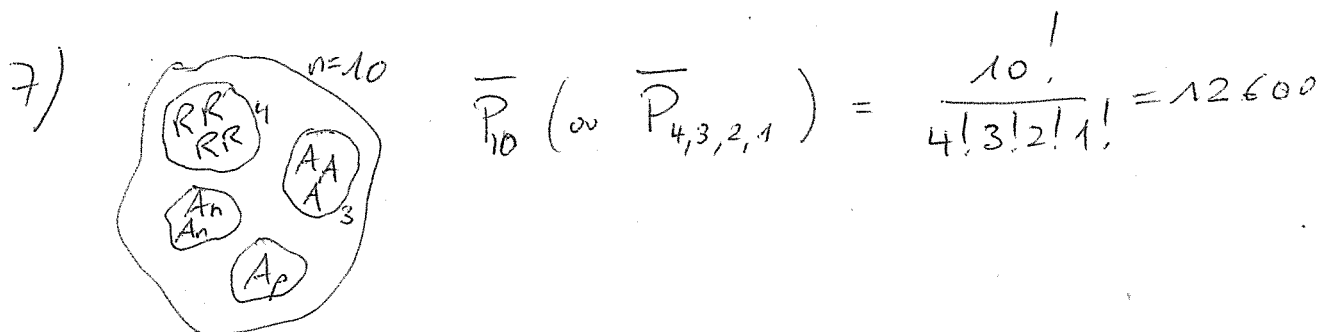 7)
n=10
R R 4
R R
A A
A 3
An
An
Ap
P̅₁₀ (ou P̅₄,₃,₂,₁) = 10! / 4! 3! 2! 1! = 12600